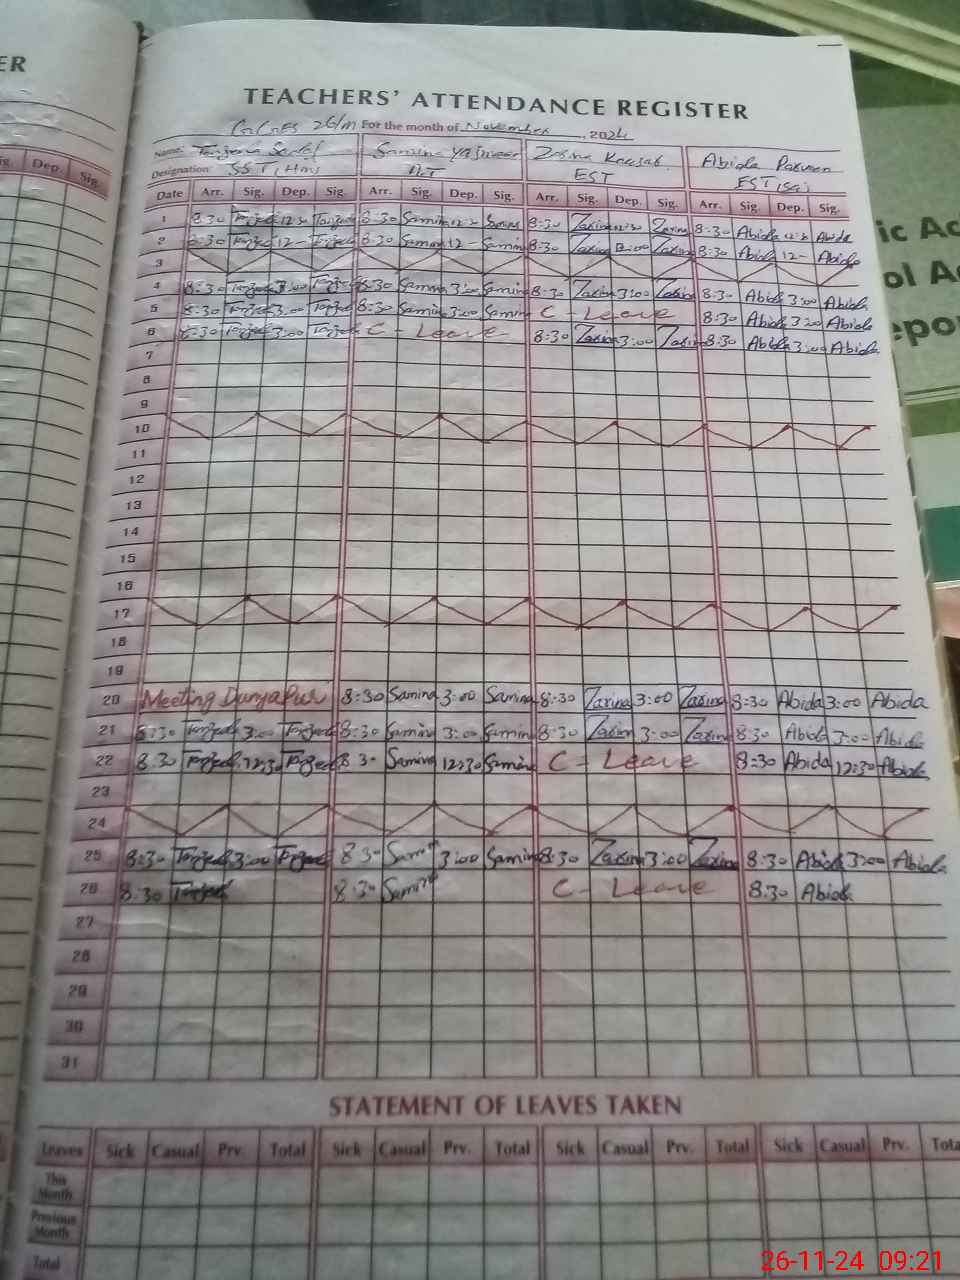 ER
TEACHERS' ATTENDANCE REGISTER
GGES 26/M For the month of November, 2024
Name: Samina Zarina Kousab Abida Parveen
Designation: SST(Hm) EST EST (Sci)
Sig. Dep. Sig.
Date Arr. Sig. Dep. Sig. Arr. Sig. Dep. Sig. Arr. Sig. Dep. Sig. Arr. Sig. Dep. Sig.
1 8:30 8:30 Samina Samina 8:30 Zarina Zarina 8:30 Abida Abida
2 8:30 12- 8:30 Samina 12- Samina 8:30 Zarina 12:00 Zarina 8:30 Abida 12- Abida
3
4 8:30 3:00 8:30 Samina 3:00 Samina 8:30 Zarina 3:00 Zarina 8:30 Abida 3:00 Abida
5 8:30 3:00 8:30 Samina 3:00 Samina C - Leave 8:30 Abida 3:00 Abida
6 8:30 3:00 C - Leave 8:30 Zarina 3:00 Zarina 8:30 Abida 3:00 Abida
7
8
9
10
11
12
13
14
15
16
17
18
19
20 Meeting Dunyapur 8:30 Samina 3:00 Samina 8:30 Zarina 3:00 Zarina 8:30 Abida 3:00 Abida
21 8:30 3:00 8:30 Samina 3:00 Samina 8:30 Zarina 3:00 Zarina 8:30 Abida 3:00 Abida
22 8:30 12:30 8:30 Samina 12:30 Samina C - Leave 8:30 Abida 12:30 Abida
23
24
25 8:30 3:00 8:30 Samina 3:00 Samina 8:30 Zarina 3:00 Zarina 8:30 Abida 3:00 Abida
26 8:30 8:30 Samina C - Leave 8:30 Abida
27
28
29
30
31
STATEMENT OF LEAVES TAKEN
Leaves Sick Casual Prv. Total Sick Casual Prv. Total Sick Casual Prv. Total Sick Casual Prv. Tota
This Month
Previous Month
Total
ic Ac
ol Ac
epor
26-11-24 09:21